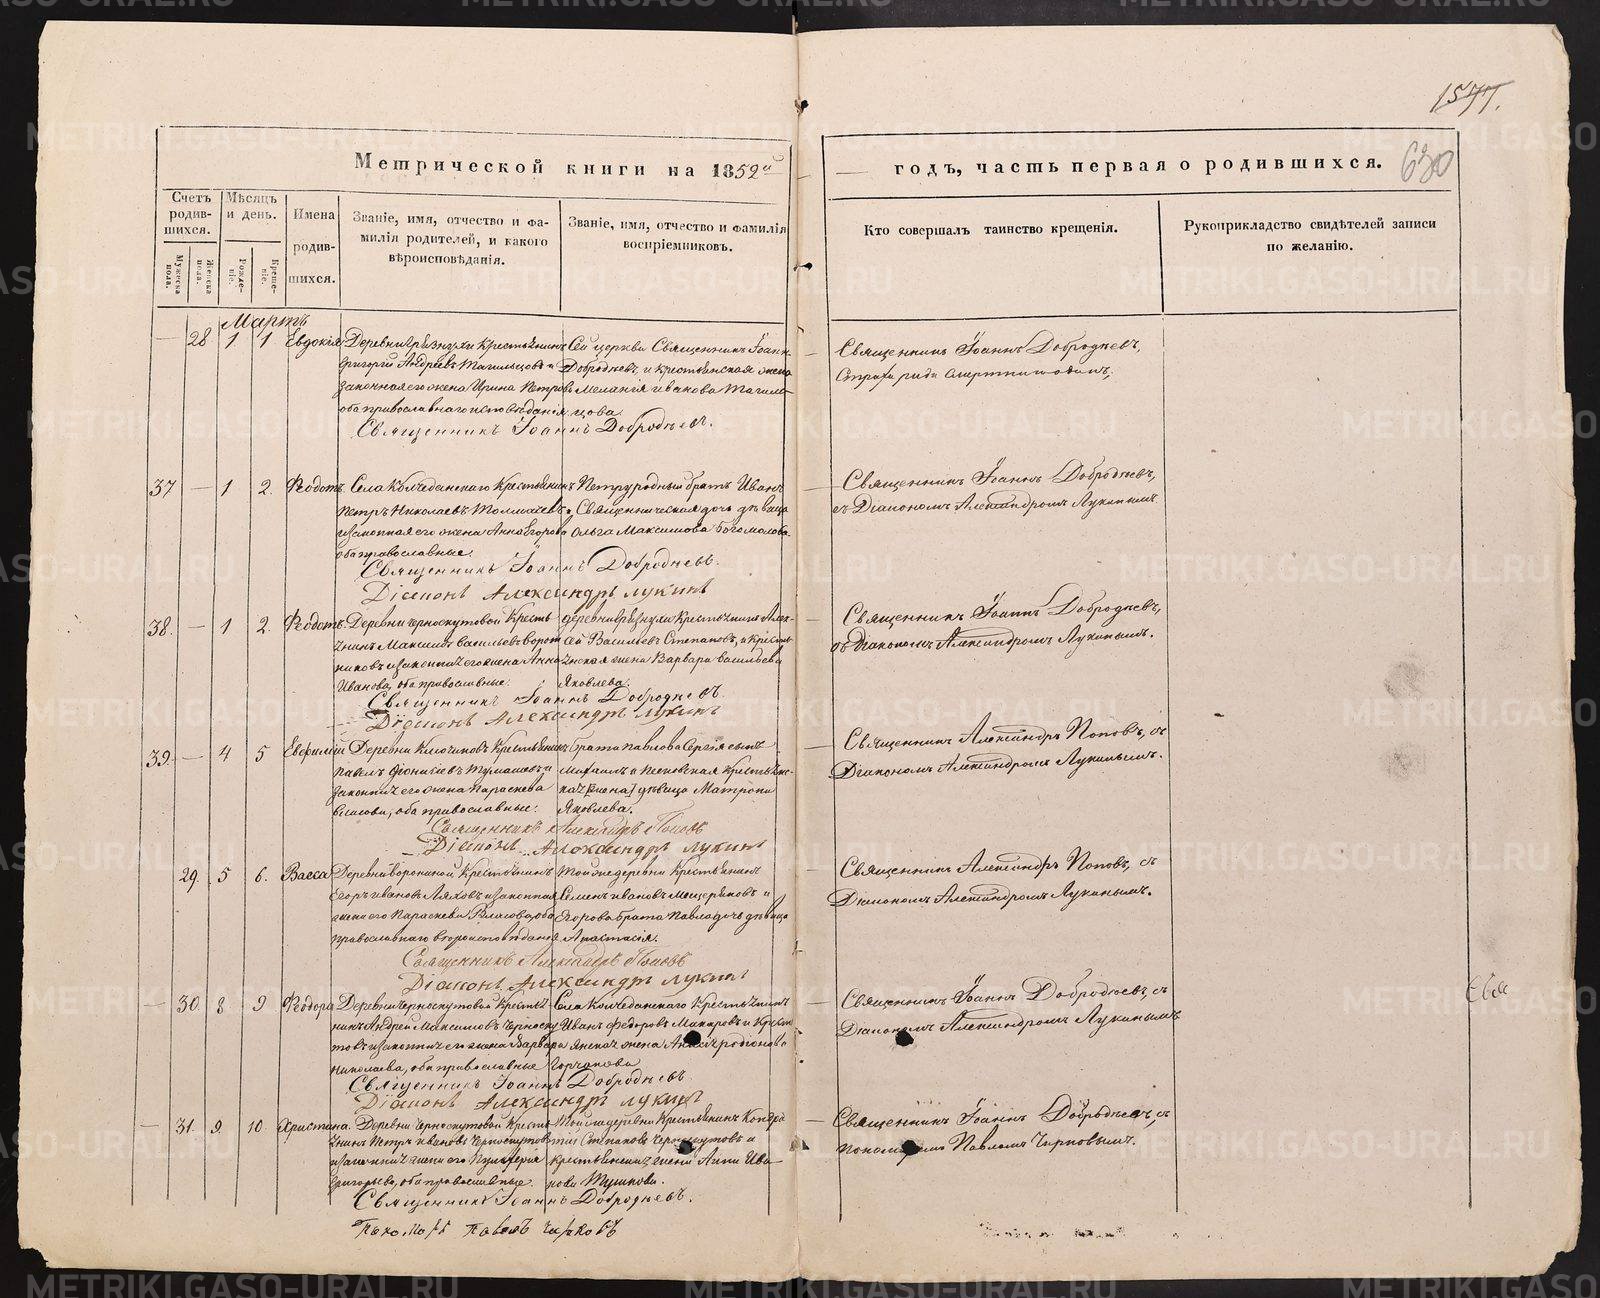 1577.
630
Метрической книги на 1852й
годъ, часть первая о родившихся.
Счетъ родив- шихся.
Мѣсяцъ и день.
Имена родив- шихся.
Званіе, имя, отчество и фа- милія родителей, и какого вѣроисповѣданія.
Званіе, имя, отчество и фамилія воспріемниковъ.
Кто совершалъ таинство крещенія.
Рукоприкладство свидѣтелей записи по желанію.
Мужеска пола.
Женска пола.
Рожде- ніе.
Креще- ніе.
Мартъ
28 1 1 Евдокія
Деревни Крестьянинъ
Григорій Андреевъ Тагильцовъ и
законная его жена Ирина Петрова
оба православнаго исповѣданія
Сей церкви Священникъ Іоаннъ
Добродневъ, и крестьянская жена
Меланія Иванова Тагиль-
цова.
Священникъ Іоаннъ Добродневъ,
Страха ради смертнаго
Священникъ Іоаннъ Добродневъ.
37 — 1 2. Феодотъ.
Села Колчеданскаго Крестьянинъ
Петръ Николаевъ Толмачевъ и
законная его жена Анна Егорова
оба православные.
Петру родный братъ Иванъ
Священническая дочь дѣвица
Ольга Максимова Богомолова
Священникъ Іоаннъ Добродневъ,
съ Діакономъ Александромъ Лукинымъ
Священникъ Іоаннъ Добродневъ.
Діаконъ Александръ Лукинъ
38. — 1 2. Феодотъ.
Деревни Черноскутовой Кресть
янинъ Максимъ Васильевъ Ворот
никовъ и законная его жена Анна
Иванова, оба православные.
деревни Крестьянинъ Алек-
сѣй Васильевъ Степановъ, и Кресть-
янская жена Варвара Васильева
Яковлева.
Священникъ Іоаннъ Добродневъ,
съ Діакономъ Александромъ Лукинымъ.
Священникъ Іоаннъ Добродневъ
Діаконъ Александръ Лукинъ
39. — 4 5 Евфимій
Деревни Ключиковъ Крестьянинъ
Павелъ Діонисіевъ Тумашевъ и
законная его жена Параскева
Власова, оба православные.
брата Павлова Сергѣя сынъ
Михаилъ и Крестьянс-
кая дѣвица Матрона
Яковлева.
Священникъ Александръ Поповъ, съ
Діакономъ Александромъ Лукинымъ.
Священникъ Александръ Поповъ
Діаконъ Александръ Лукинъ
29. 5 6. Васса
Деревни Ворониной Крестьянинъ
Егоръ Ивановъ Ляховъ и законная
жена его Параскева Власова, оба
православнаго вѣроисповѣданія
Той же деревни Крестьянинъ
Семенъ Ивановъ Мещеряковъ и
Егорова брата Павла дочь дѣвица
Анастасія.
Священникъ Александръ Поповъ, съ
Діакономъ Александромъ Лукинымъ.
Священникъ Александръ Поповъ
Діаконъ Александръ Лукинъ
— 30. 8 9 Феодора
Деревни Черноскутовой Крестья
нинъ Андрей Максимовъ Черноску
товъ и законная его жена Варвара
Николаева, оба православные
Села Колчеданскаго Крестьянинъ
Иванъ Федоровъ Макаровъ и Крест
янская жена Родіонова
Горчакова
Священникъ Іоаннъ Добродневъ, съ
Діакономъ Александромъ Лукинымъ
Священникъ Іоаннъ Добродневъ
Діаконъ Александръ Лукинъ
— 31. 9 10 Христина.
Деревни Черноскутовой Кресть
янинъ Петръ Ивановъ Черноскутовъ
и законная жена его Пульхерія
Григорьева, оба православные.
Той же деревни Крестьянинъ Кондра
тій Степановъ Черноскутовъ и
крестьянская жена Анна Ива-
нова Тушкова.
Священникъ Іоаннъ Добродневъ, съ
пономаремъ Павломъ Черновымъ.
Священникъ Іоаннъ Добродневъ.
Пономарь Павелъ Черновъ
METRIKI.GASO-URAL.RU